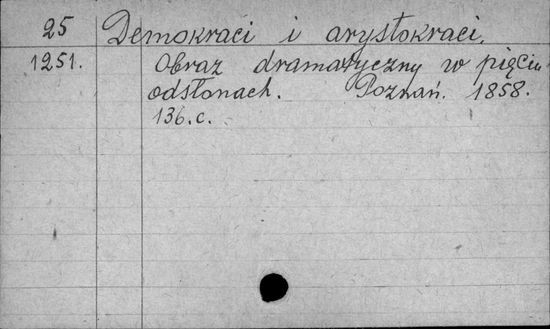 25 Demokraci i arystokraci.
1251. Obraz dramatyczny w pięciu
odsłonach. Poznań. 1858.
136.c.